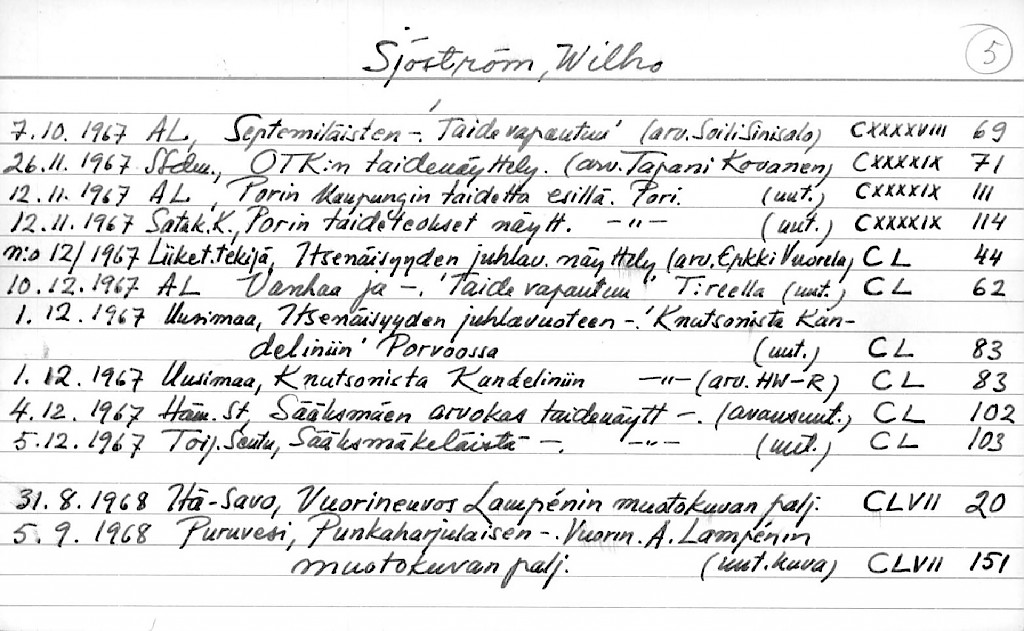 Sjöström, Wilho 5
7.10.1967 AL, Septemiläisten -. 'Taide vapautuu' (arv. Soili Sinisalo) CXXXXVIII 69
26.11.1967 STdm., OTK:n taidenäyttely. (arv. Tapani Kovanen) CXXXXIX 71
12.11.1967 AL, Porin kaupungin taidetta esillä. Pori. (uut.) CXXXXIX 111
12.11.1967 Satak.K., Porin taideteokset näytt. -"- (uut.) CXXXXIX 114
n:o 12/1967 Liiket.tekijä, Itsenäisyyden juhlav. näyttely (arv. Erkki Vuorela) CL 44
10.12.1967 AL Vanhaa ja -. 'Taide vapautuu' T:reella (uut.) CL 62
1.12.1967 Uusimaa, Itsenäisyyden juhlavuoteen -. 'Knutsonista Kan-
deliniin' Porvoossa (uut.) CL 83
1.12.1967 Uusimaa, Knutsonista Kandeliniin -"- (arv. HW-R) CL 83
4.12.1967 Häm.St, Sääksmäen arvokas taidenäytt -. (avausuut.) CL 102
5.12.1967 Toij.Seutu, Sääksmäkeläistä -. -"- (uut.) CL 103
31.8.1968 Itä-Savo, Vuorineuvos Lampénin muotokuvan palj. CLVII 20
5.9.1968 Puruvesi, Punkaharjulaisen -. Vuorin. A. Lampénin
muotokuvan palj. (uut. kuva) CLVII 151